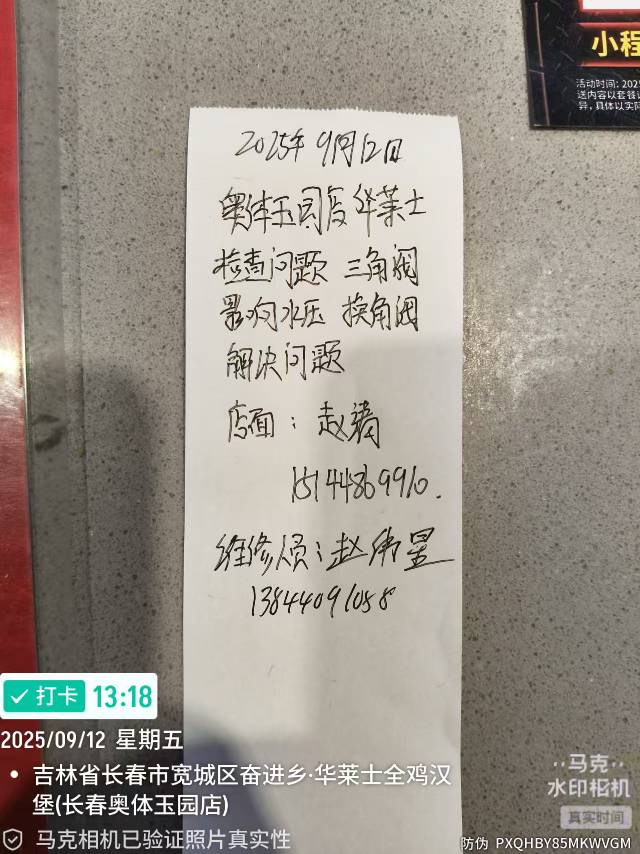 小程
活动时间：2025
送内容以套餐
异，具体以实际
2025年9月12日
奥体玉园店华莱士
检查问题 三角阀
影响水压 换角阀
解决问题
店面：赵
15144869910.
维修员：赵伟星
13844091058
打卡 13:18
2025/09/12 星期五
吉林省长春市宽城区奋进乡·华莱士全鸡汉
堡(长春奥体玉园店)
马克相机已验证照片真实性
马克
水印相机
真实时间
防伪 PXQHBY85MKWVGM